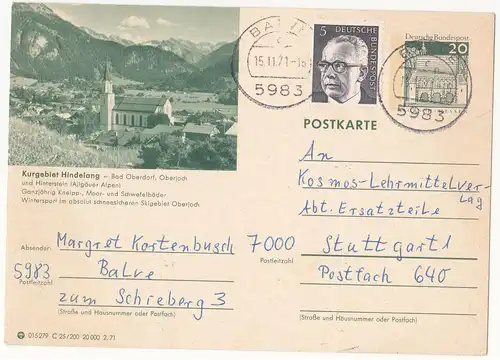 BALVE
15.11.71-15
5983
5
DEUTSCHE BUNDESPOST
Deutsche Bundespost
20
5983
POSTKARTE
Kurgebiet Hindelang – Bad Oberdorf, Oberjoch
und Hinterstein (Allgäuer Alpen)
Ganzjährig Kneipp-, Moor- und Schwefelbäder
Wintersport im absolut schneesicheren Skigebiet Oberjoch
An
Kosmos-Lehrmittelver-
lag
Abt. Ersatzteile
Absender: Margret Kortenbusch
5983 Balve
Postleitzahl
zum Schieberg 3
(Straße und Hausnummer oder Postfach)
7000 Stuttgart 1
Postleitzahl
Postfach 640
(Straße und Hausnummer oder Postfach)
015279 C 25/200 20 000 2.71